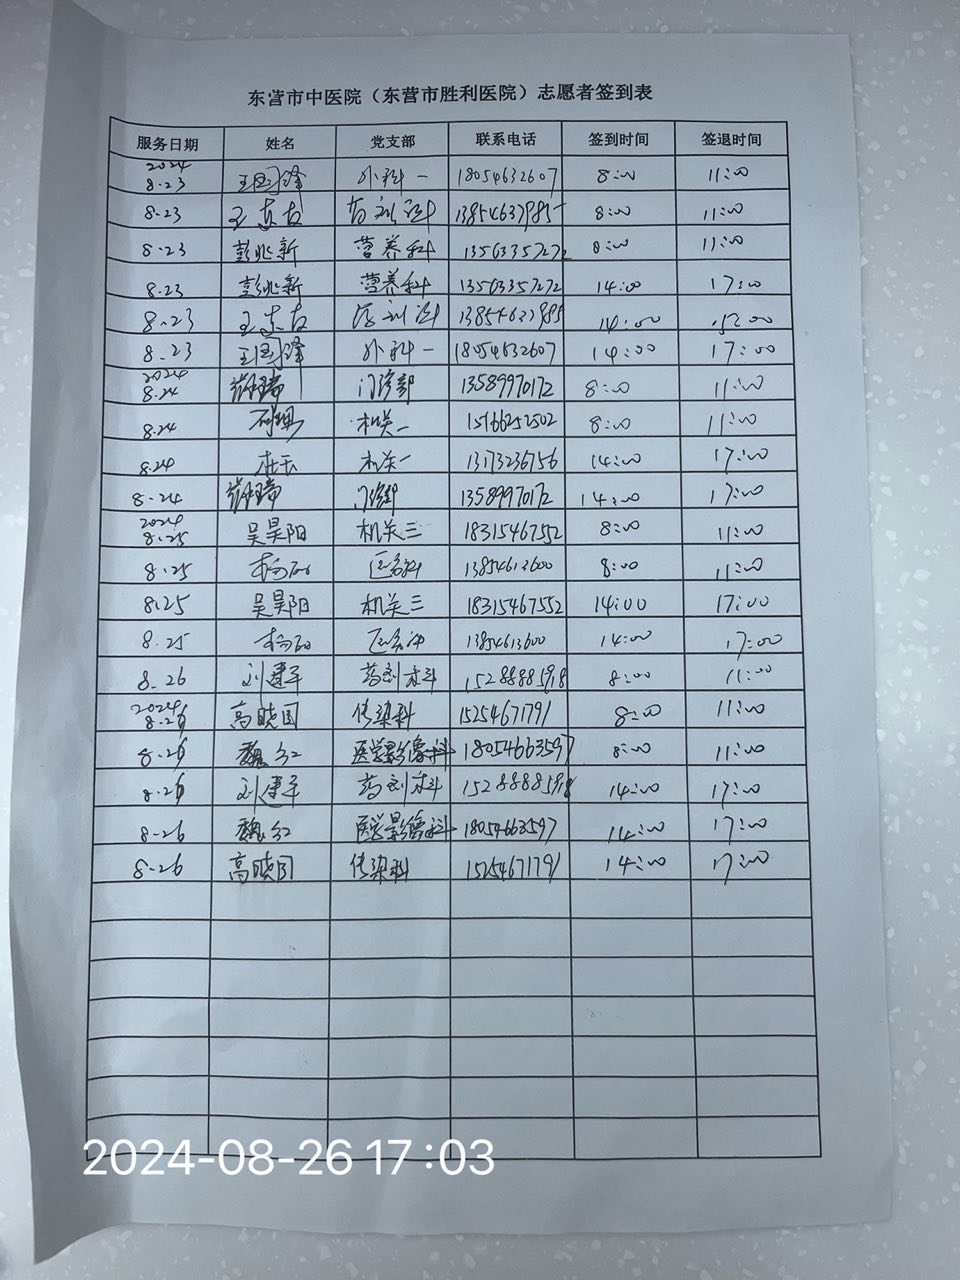 东营市中医院（东营市胜利医院）志愿者签到表
服务日期 姓名 党支部 联系电话 签到时间 签退时间
2024 8.23 王国锋 外科一 18054632607 8:00 11:00
8-23 王东友 13854637985 8:00 11:00
8-23 彭兆新 营养科 13563357272 8:00 11:00
8.23 彭兆新 营养科 13563357272 14:00 17:00
8.23 王东友 13854637985 14:00
8.23 王国锋 外科一 18054632607 14:00 17:00
2024 8.24 门诊部 13589970172 8:00 11:00
8.24 机关一 15166252502 8:00 11:00
8.24 杜玉 机关一 13173236756 14:00 17:00
8-24 门诊部 13589970172 14:00 17:00
2024 8.25 吴昊阳 机关三 18315467552 8:00 11:00
8.25 13854613600 8:00 11:00
8.25 吴昊阳 机关三 18315467552 14:00 17:00
8.25 13854613600 14:00 17:00
8.26 刘建平 药剂科 15288885918 8:00 11:00
2024 8.26 高晓国 传染科 15254671791 8:00 11:00
8-26 魏红 医学影像科 18054663597 8:00 11:00
8.26 刘建平 药剂科 15288885918 14:00 17:00
8-26 魏红 医学影像科 18054663597 14:00 17:00
8-26 高晓国 传染科 15254671791 14:00 17:00
2024-08-26 17:03